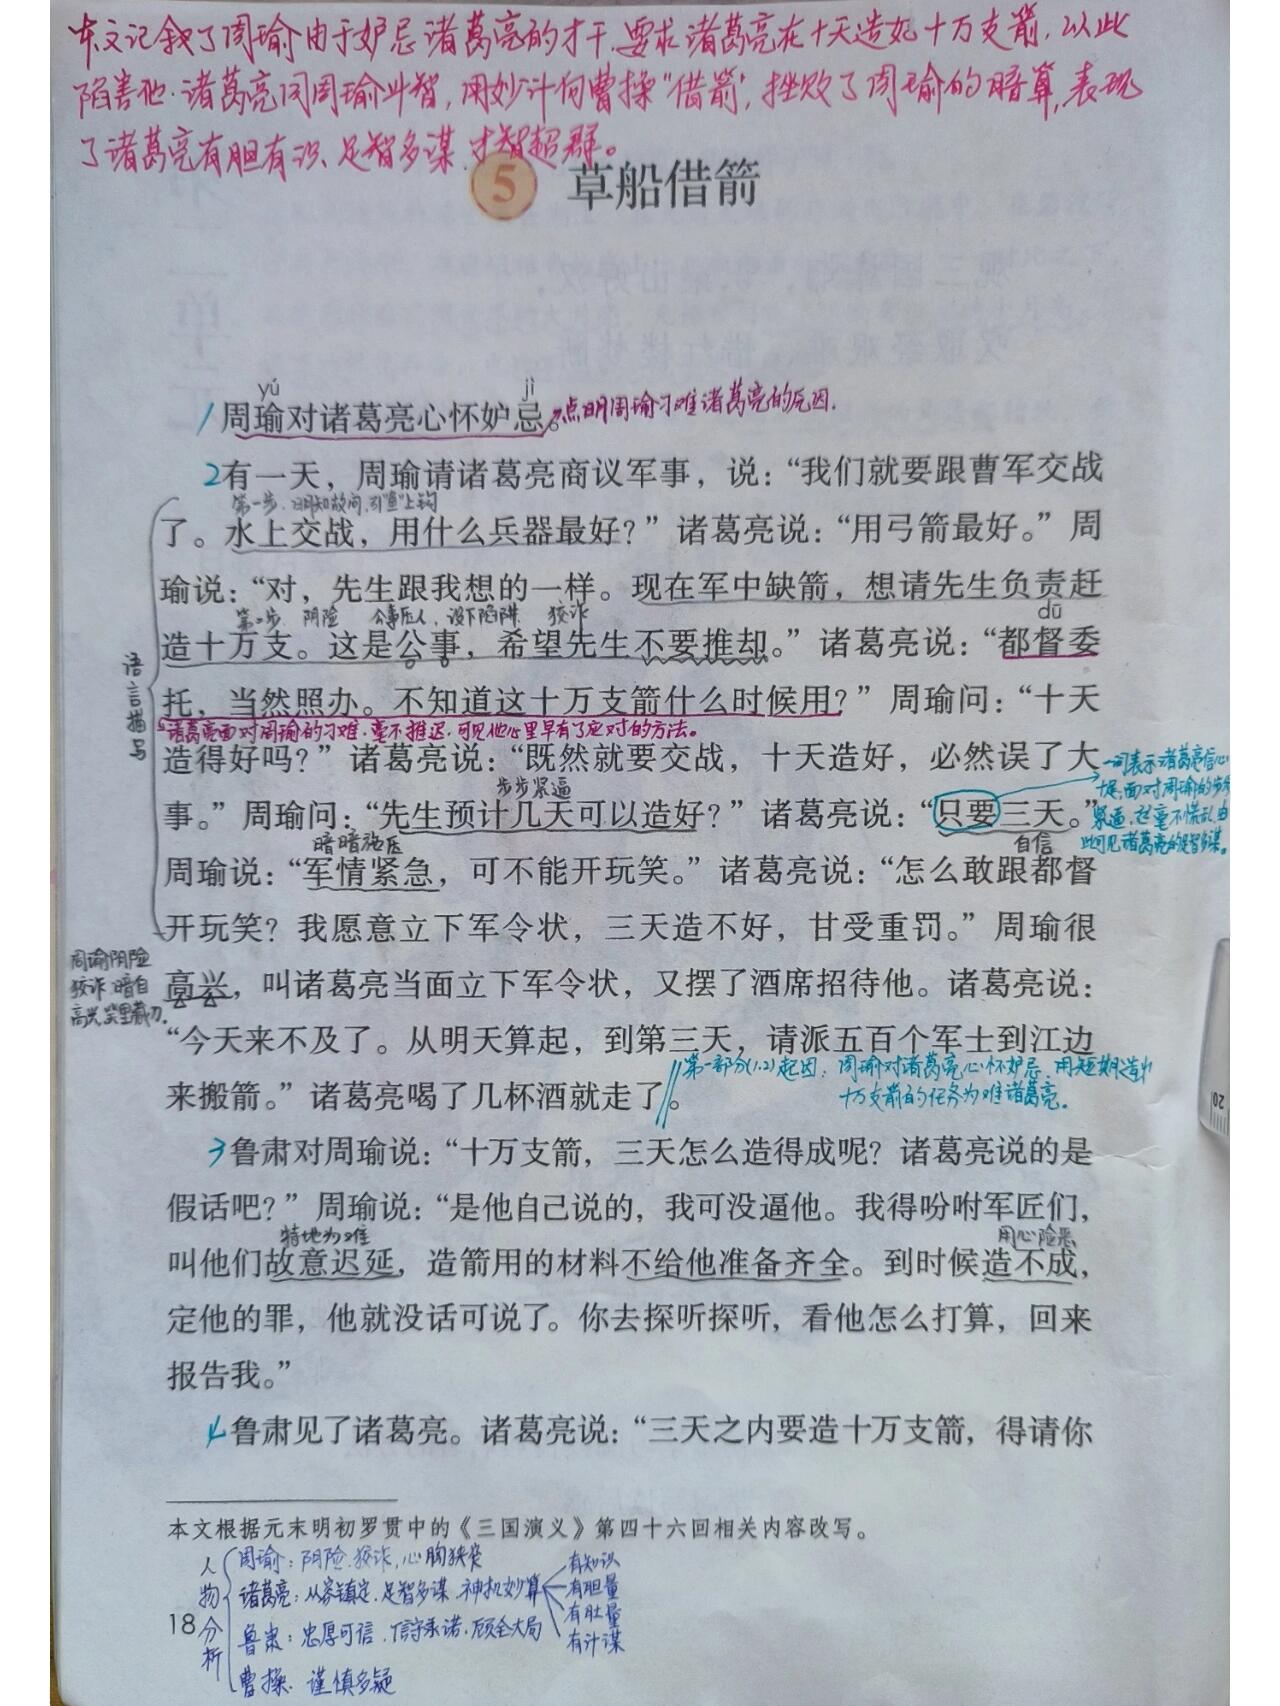 本文记叙了周瑜由于妒忌诸葛亮的才干,要求诸葛亮在十天造好十万支箭,以此
陷害他.诸葛亮同周瑜斗智,用妙计向曹操"借箭",挫败了周瑜的暗算,表现
了诸葛亮有胆有识、足智多谋、才智超群。
5 草船借箭
yú jì
1 周瑜对诸葛亮心怀妒忌。点明周瑜刁难诸葛亮的原因.
2 有一天，周瑜请诸葛亮商议军事，说：“我们就要跟曹军交战
第一步.明知故问,引"鱼"上钩
了。水上交战，用什么兵器最好？”诸葛亮说：“用弓箭最好。”周
瑜说：“对，先生跟我想的一样。现在军中缺箭，想请先生负责赶
第二步 阴险 公事压人，设下陷阱 狡诈 dū
造十万支。这是公事，希望先生不要推却。”诸葛亮说：“都督委
语言描写
托，当然照办。不知道这十万支箭什么时候用？”周瑜问：“十天
诸葛亮面对周瑜的刁难,毫不推迟,可见他心里早有了应对的方法。
造得好吗？”诸葛亮说：“既然就要交战，十天造好，必然误了大
步步紧逼
事。”周瑜问：“先生预计几天可以造好？”诸葛亮说：“只要三天。”
一词表示诸葛亮信心
十足,面对周瑜的步步
紧逼,丝毫不慌乱,由
此可见诸葛亮的足智多谋。
暗暗施压 自信
周瑜说：“军情紧急，可不能开玩笑。”诸葛亮说：“怎么敢跟都督
开玩笑？我愿意立下军令状，三天造不好，甘受重罚。”周瑜很
周瑜阴险
狡诈.暗自
高兴,笑里藏刀.
高兴，叫诸葛亮当面立下军令状，又摆了酒席招待他。诸葛亮说：
“今天来不及了。从明天算起，到第三天，请派五百个军士到江边
来搬箭。”诸葛亮喝了几杯酒就走了。
第一部分(1.2)起因：周瑜对诸葛亮心怀妒忌.用短期造出
十万支箭的任务为难诸葛亮。
3 鲁肃对周瑜说：“十万支箭，三天怎么造得成呢？诸葛亮说的是
假话吧？”周瑜说：“是他自己说的，我可没逼他。我得吩咐军匠们，
特地为难 用心险恶
叫他们故意迟延，造箭用的材料不给他准备齐全。到时候造不成，
定他的罪，他就没话可说了。你去探听探听，看他怎么打算，回来
报告我。”
4 鲁肃见了诸葛亮。诸葛亮说：“三天之内要造十万支箭，得请你
本文根据元末明初罗贯中的《三国演义》第四十六回相关内容改写。
人物分析
周瑜：阴险.狡诈,心胸狭窄
诸葛亮：从容镇定.足智多谋.神机妙算
有知识
有胆量
有肚量
有计谋
鲁肃：忠厚可信.信守承诺.顾全大局
曹操.谨慎多疑
18
20